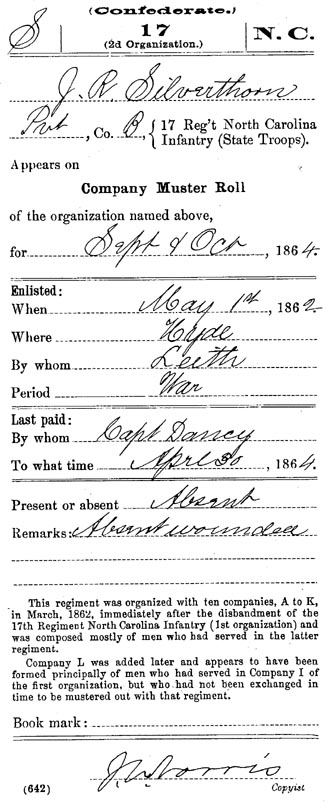 (Confederate.)
S 17 N.C.
(2d Organization.)
J. R. Silverthorn
Pvt, Co. B, { 17 Reg't North Carolina
Infantry (State Troops).
Appears on
Company Muster Roll
of the organization named above,
for Sept & Oct, 1864.
Enlisted:
When May 1st, 1862
Where Hyde
By whom Leith
Period War
Last paid:
By whom Capt Dancy
To what time Apre 30, 1864.
Present or absent Absent
Remarks: Absent wounded
This regiment was organized with ten companies, A to K,
in March, 1862, immediately after the disbandment of the
17th Regiment North Carolina Infantry (1st organization) and
was composed mostly of men who had served in the latter
regiment.
Company L was added later and appears to have been
formed principally of men who had served in Company I of
the first organization, but who had not been exchanged in
time to be mustered out with that regiment.
Book mark:
Norris
(642) Copyist